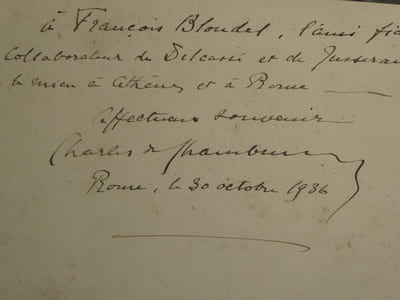 à François Blondel, l'ami fid
Collaborateur de Delcassé et de Jusseran
le mien à Athènes et à Rome —
Affectueux souvenir
Charles de Chambrun
Rome, le 30 octobre 1936